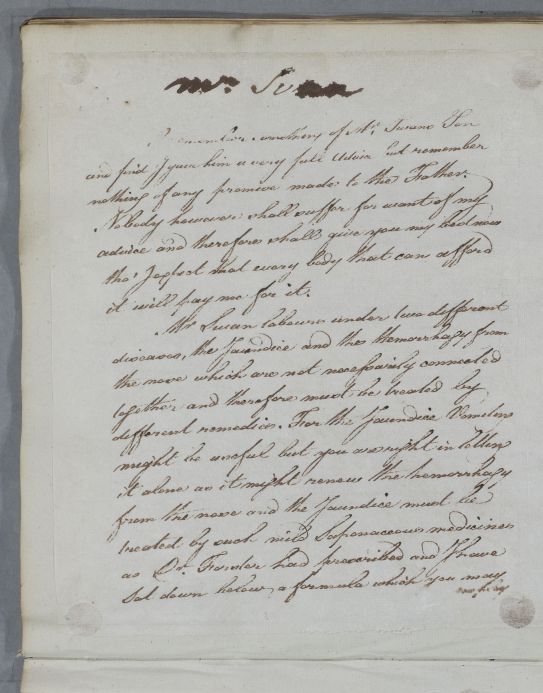 Mr. Swan
I remember something of Mr. Swans Son
and find I gave him a very full Advice but remember
nothing of any promise made to the Father.
Nobody however shall suffer for want of my
advice and therefore shall give you my best now
tho' I expect that every body that can afford
it will pay me for it.
Mr Swan labours under two different
diseases, the Jaundice and the Hemorrhagy from
the nose which are not necessarily connected
together and therefore must be treated by
different remedies. For the Jaundice Vomiting
might be useful but you are right in letting
it alone as it might renew the hemorrhagy
from the nose and the Jaundice must be
treated by such mild Saponaceous medicines
as Dr. had prescribed and I have
set down below a formula which you may